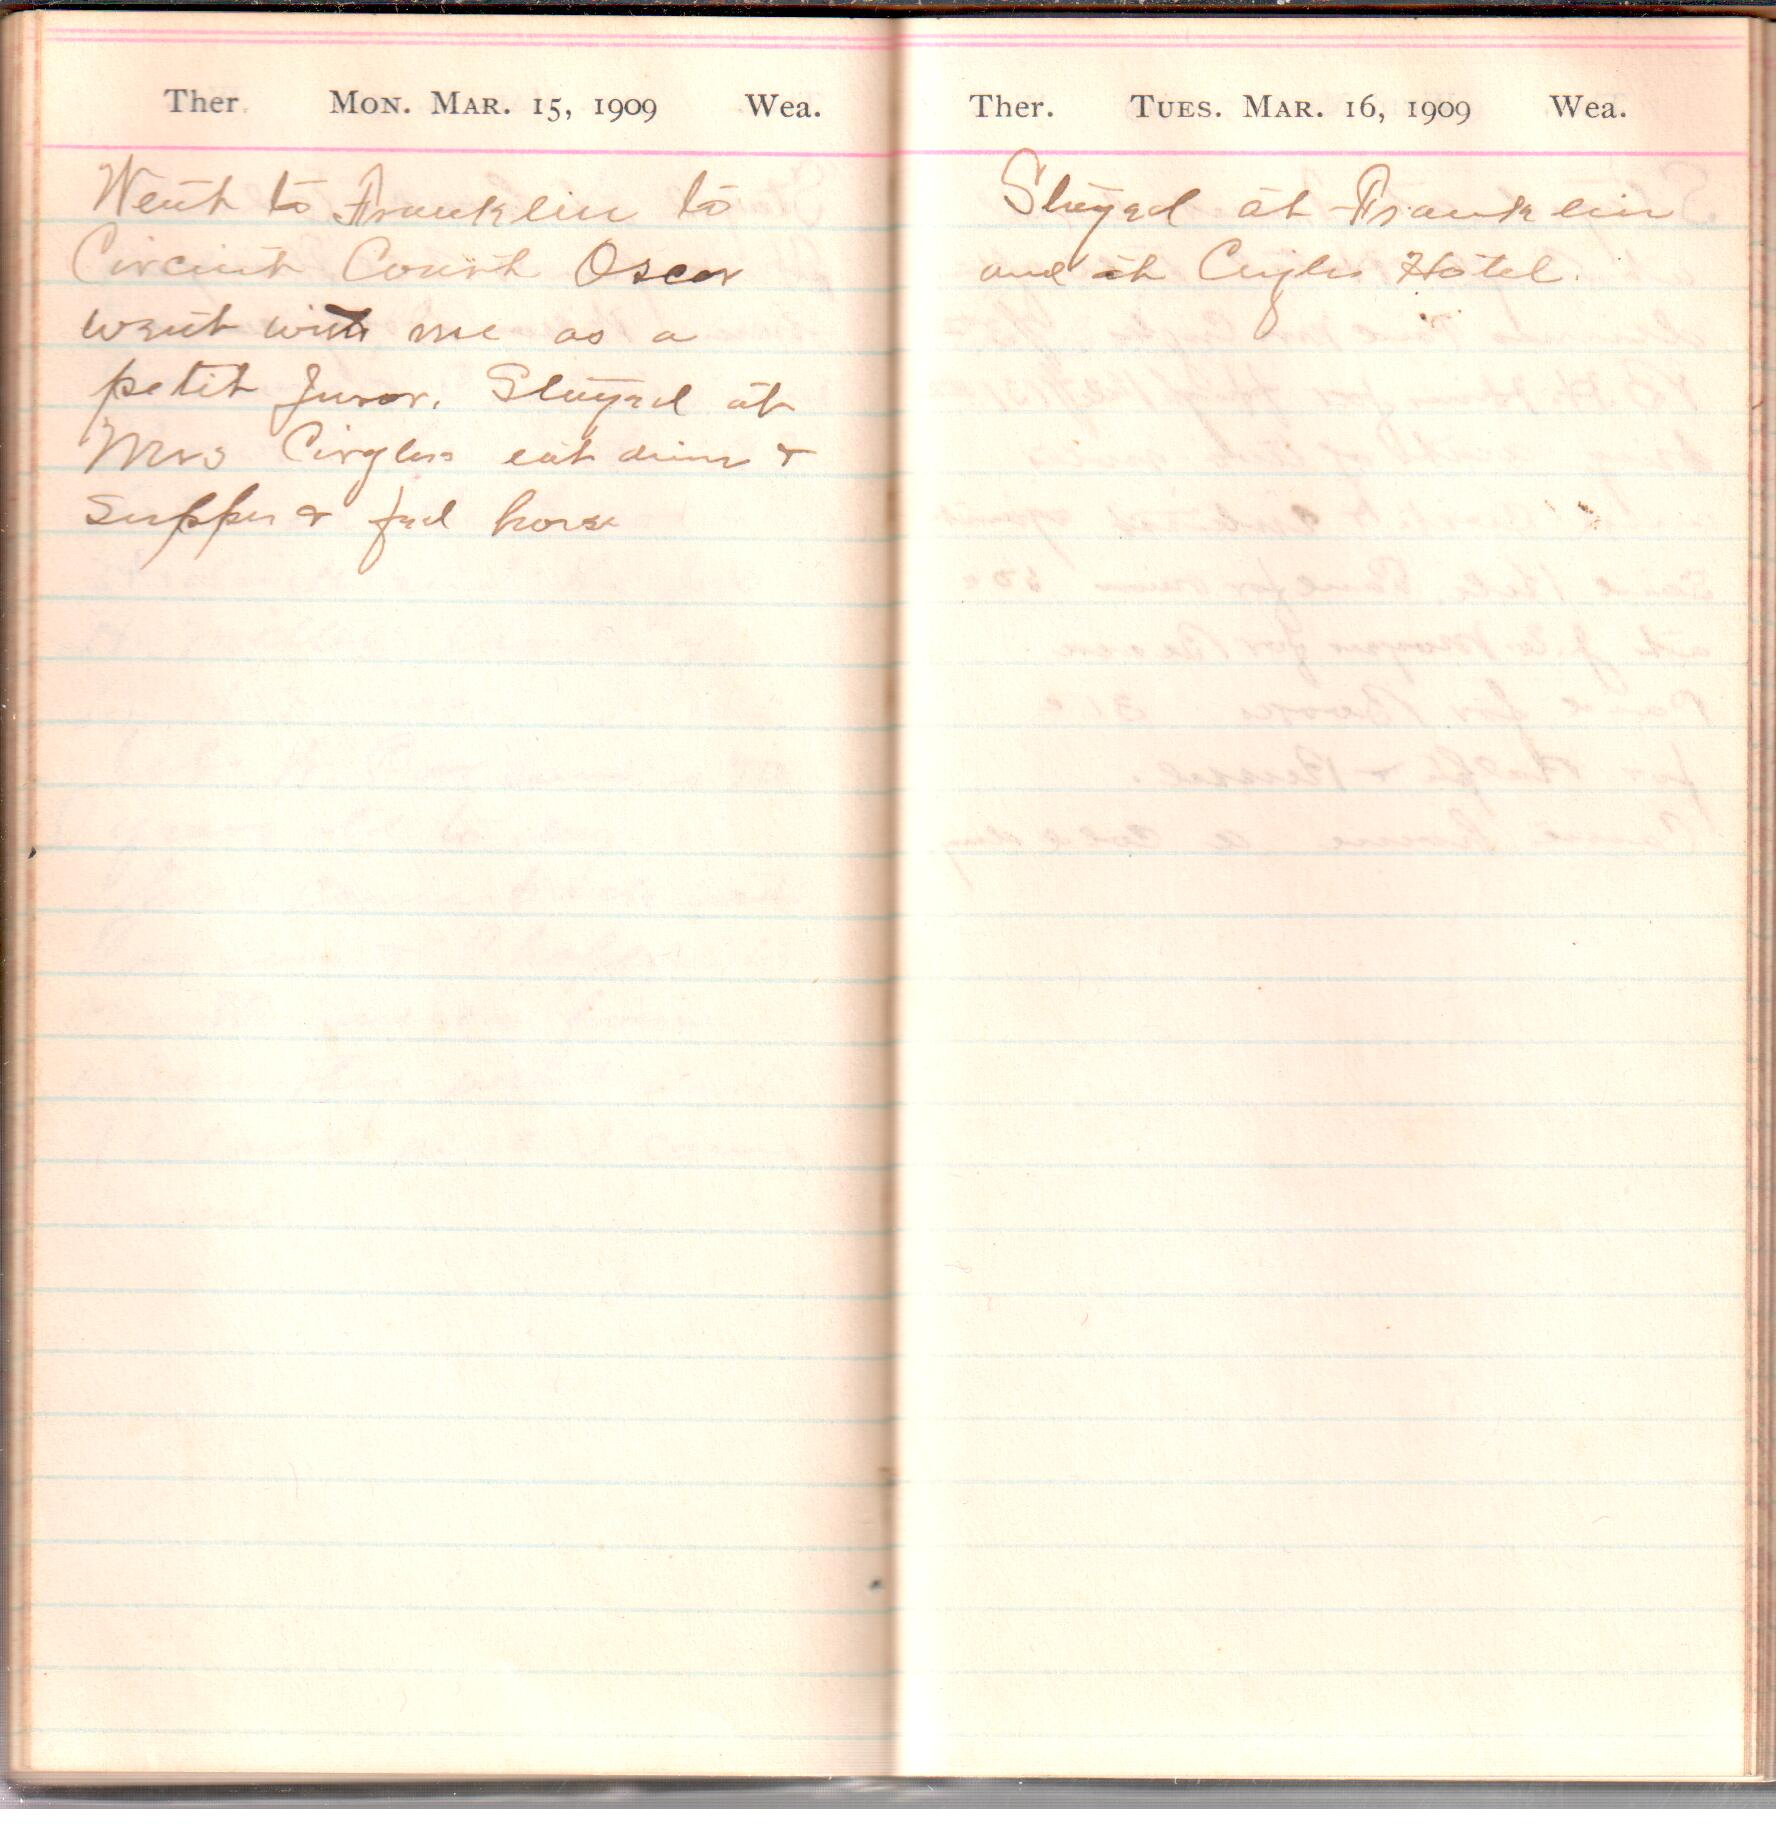 Ther. Mon. Mar. 15, 1909 Wea.
Went to Franklin to
Circuit Court Oscar
went with me as a
petit Juror. Stayed at
Mrs eat diner &
supper & fed horse
Ther. Tues. Mar. 16, 1909 Wea.
Stayed at Franklin
and at Hotel.